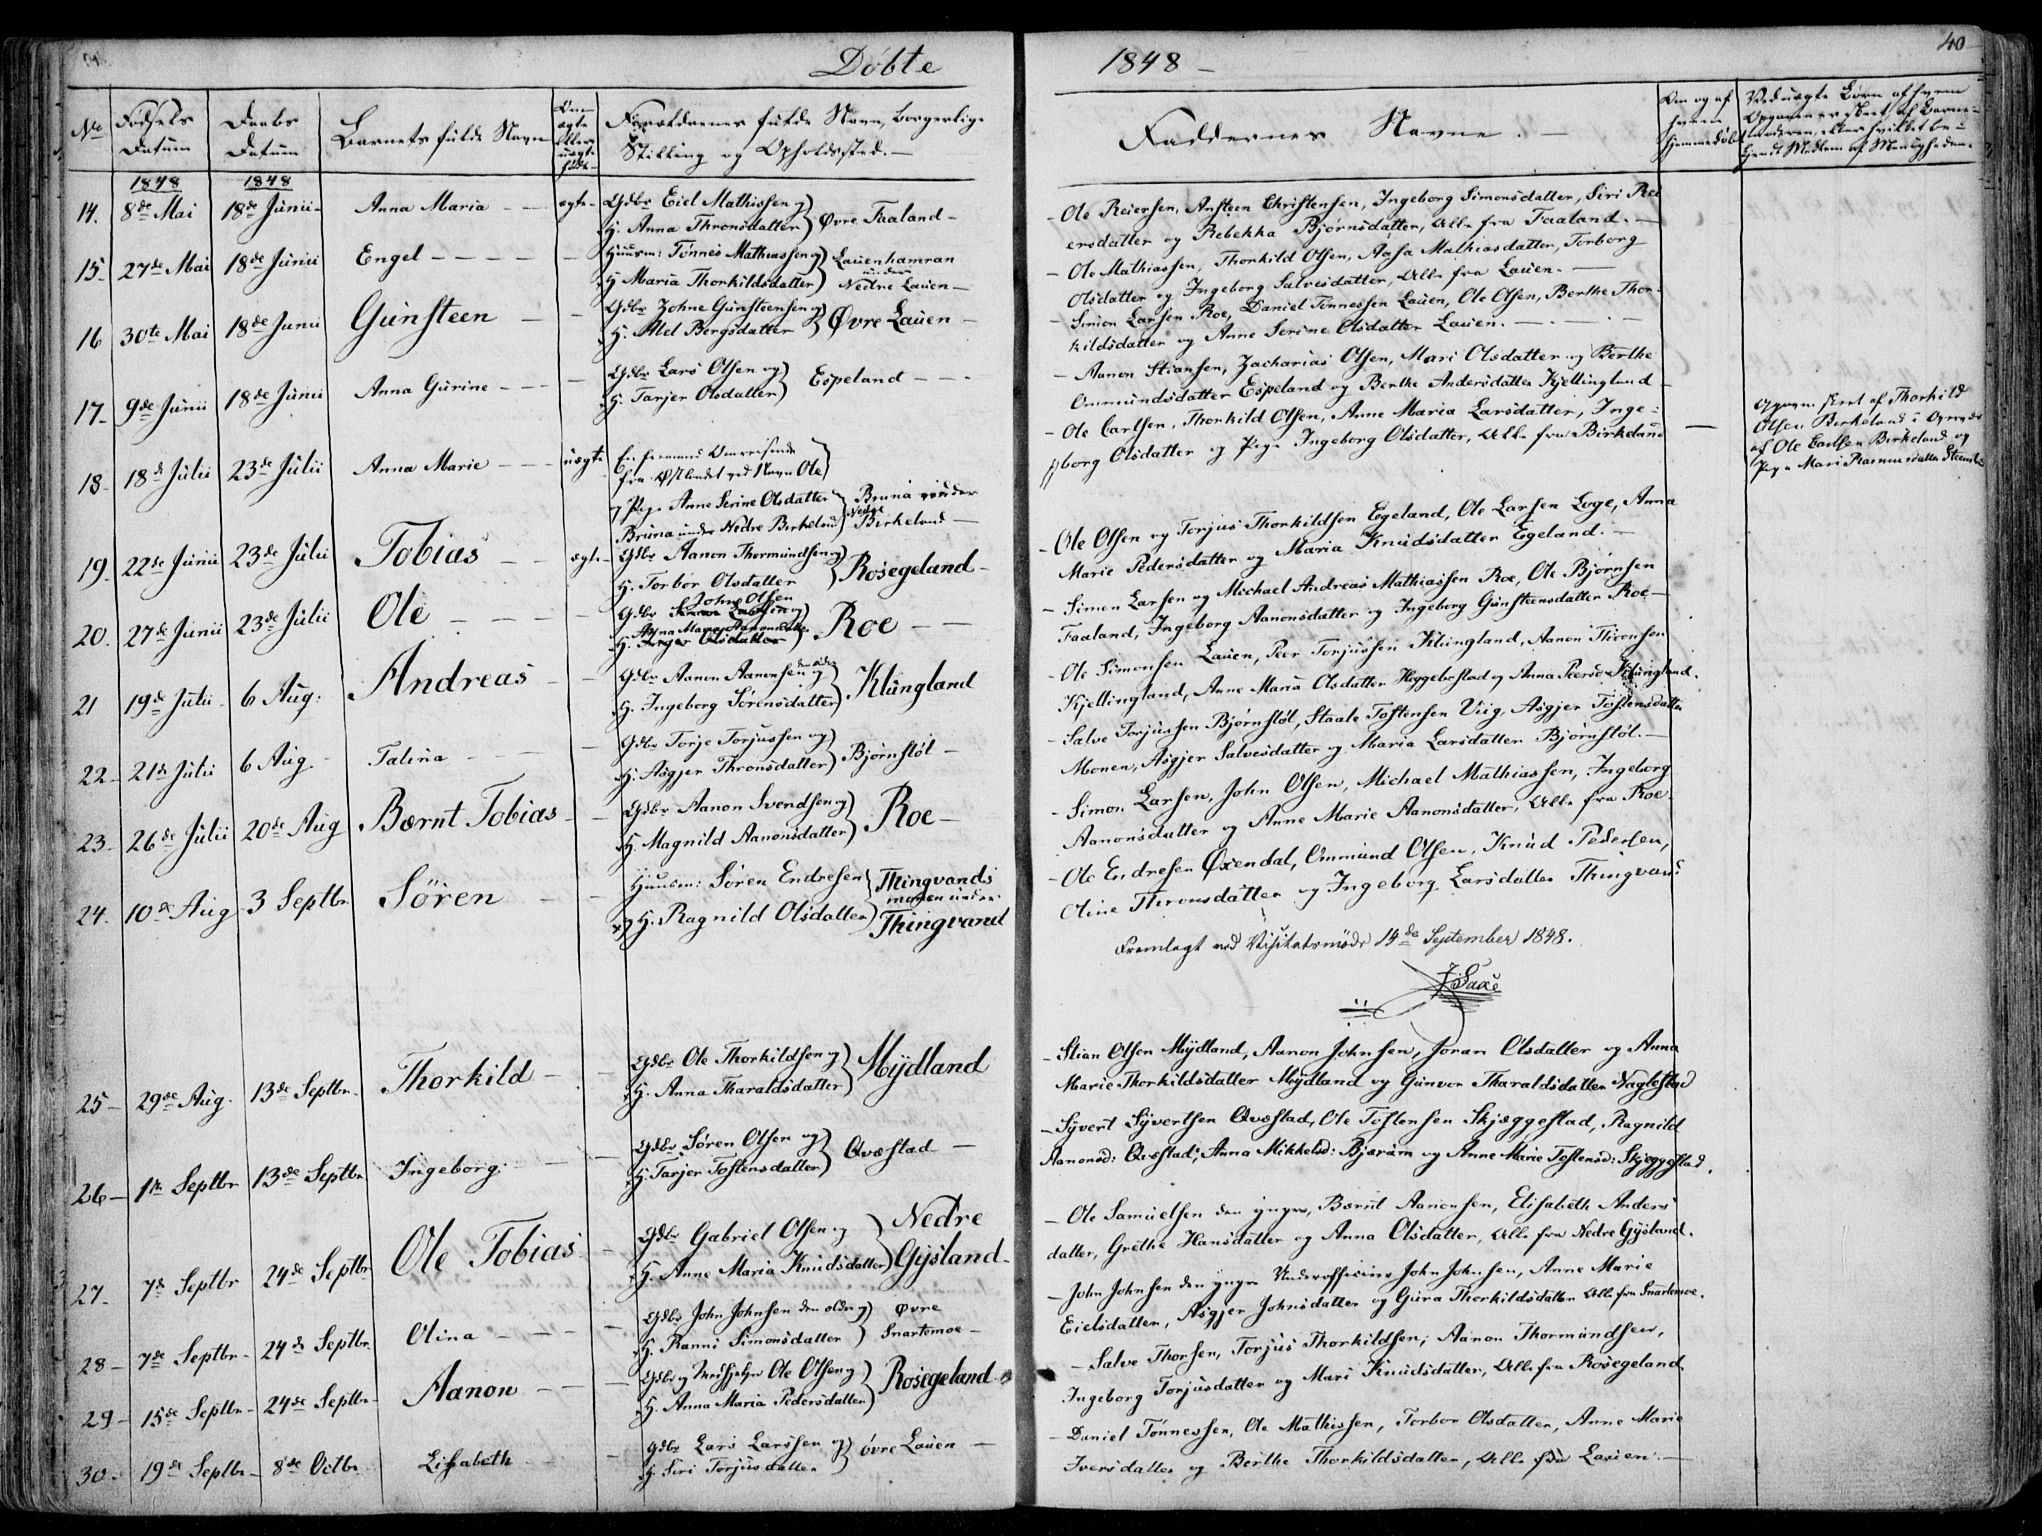 Döbte
1848 —
40
No
Födsels Datum
Daabs Datum
Barnets fulde Navn
Om ægte eller uægte född
Forældrenes fulde Navn, borgerlige Stilling og Opholdssted. —
Faddernes Navne. —
Om og af hvem hjemmedøbt
1848 1848
14. 8de Mai 18de Junii Anna Maria — ægte Gdbr Eiel Mathissen og
H. Anna Thronsdatter } Øvre Faaland —
- Ole Reiersen, Ansteen Christensen, Ingeborg Simonsdatter, Siri Rei
ersdatter og Rebekka Bjørnsdatter, Alle fra Faaland. —
15. 27de Mai 18de Junii Engel — Huusm: Tönnes Mathiassen og
H. Maria Thorkildsdatter } Lauenhamran under Nedre Lauen —
- Ole Mathiassen, Thorkild Olsen, Aasa Mathiasdatter, Torborg
Olsdatter og Ingeborg Salvesdatter, Alle fra Lauen. —
16 30te Mai 18de Junii Gunsteen — Gdbr Johne Gunsteensen og
H. Abel Borgsdatter } Øvre Lauen —
- Simon Larsen Roe, Daniel Tönnessen Lauen, Ole Olsen, Berthe Thor-
kildsdatter og Anne Serine Olsdatter Lauen. —
17. 9de Junii 18de Junii Anna Gurine — Gdbr Lars Olsen og
H. Tarjer Olsdatter } Espeland —
- Aanon Stiansen, Zacharias Olsen, Mari Olsdatter og Berthe
Ommundsdatter Espeland og Berthe Andersdatter Kjellingland
18. 18de Julii 23de Julii Anna Marie — uægte En fra Østlandet ved Navn Ole }
og Pige Anne Serine Olsdatter
Bruna under Nedre Birkeland } Bruna under Nedre Birkeland —
- Ole Carlsen, Thorkild Olsen, Anne Maria Larsdatter, Inge-
borg Olsdatter og Pige Ingeborg Olsdatter, Alle fra Birkeland
— Opgaven skeet af Thorkild
Olsen Birkeland i
af Ole Carlsen Birkeland og
Pige Mari Rasmusdatter
19. 22de Junii 23de Julii Tobias — ægte Gdbr Aanon Thormundsen og
H. Torbor Olsdatter } Rosegeland —
- Ole Olsen og Torjus Thorkildsen Egeland, Ole Larsen Loge, Anna
Marie Pedersdatter og Maria Knudsdatter Egeland. —
20. 27de Junii 23de Julii Ole — Gdbr John Olsen og
H. Anna Marie Aanonsdatter } Roe —
- Simon Larsen og Michael Andreas Mathiassen Roe, Ole Bjørnsen
Faaland, Ingeborg Aanonsdatter og Ingeborg Gunsteensdatter Roe —
21 19de Julii 6 Aug: Andreas — Gdbr Aanon Aanonsen den eldre og
H. Ingeborg Sörensdatter } Klungland
- Ole Simonsen Lauen, Peer Torjussen Klungland, Aanon Thronsen
Kjellingland, Anne Maria Olsdatter Heggebostad og Anna Peersd. Klungland.
22 — 21de Julii 6 Aug — Talina — Gdbr Torje Torjussen og
H. Asgjer Thronsdatter } Bjørnstöl —
- Salve Torjussen Bjørnstöl, Staale Tostensen Viig, Asgjer Tostensdatter
Monen, Asgjer Salvesdatter og Maria Larsdatter Bjørnstöl. —
23 — 26de Julii 20de Aug Bærnt Tobias — Gdbr Aanon Svendsen og
H. Magnild Aanonsdatter } Roe —
- Simon Larsen, John Olsen, Michael Mathiassen, Ingeborg
Aanonsdatter og Anne Marie Aanonsdatter, Alle fra Roe.
24. 10de Aug 3 Septbr Sören — Huusm: Sören Endresen
og H. Ragnild Olsdatter } Thingvandsmoen under Thingvand
- Ole Endresen Øxendal, Ommund Olsen, Knud Pedersen,
Oline Thronsdatter og Ingeborg Larsdatter Thingvand
Fremlagt ved Visitatsmöde 14de September 1848.
J Saxe
25 — 29de Aug. 13de Septbr. Thorkild — Gdbr Ole Thorkildsen og
H. Anna Tharaldsdatter } Mydland
- Stian Olsen Mydland, Aanon Johnsen, Joran Olsdatter og Anna
Marie Thorkildsdatter Mydland og Gunvor Tharaldsdatter Naglestad
26 — 1ste Septbr 13de Septbr Ingeborg. — Gdbr Sören Olsen og
H. Tarjer Tostensdatter } Qvæstad —
- Syvert Syvertsen Qvæstad, Ole Tostensen Skjæggestad, Ragnild
Aanonsd: Qvæstad, Anna Mikkelsd: Bjærum og Anne Marie Tostensd: Skjeggestad.
27. 7de Septbr 24de Septbr Ole Tobias — Gdbr Gabriel Olsen og
H. Anne Maria Knudsdatter } Nedre Gysland —
- Ole Samuelsen den yngre, Bærnt Aanonsen, Elisabeth Anders
datter, Grethe Hansdatter og Anna Olsdatter, Alle fra Nedre Gysland.
28 — 7de Septbr — 24de Septbr. Olina — Gdbr John Johnsen den eldre og
H. Ranni Simonsdatter } Øvre Snartemoe —
- John Johnsen den yngre Underofficier John Johnsen, Anne Marie
Eielsdatter, Asgjer Johnsdatter og Gura Thorkildsdatter Alle fra Snartemoe.
29 — 15de Septbr — 24de Septbr. Aanon — Gdbr og Ole Olsen og
H. Anna Maria Pedersdatter } Rosegeland
- Salve Thorsen, Torjus Thorkildsen, Aanon Thormundsen,
Ingeborg Torjusdatter og Mari Knudsdatter, Alle fra Rosegeland.
30. 19de Septbr — 8de Octbr Lisabeth — Gdbr Lars Larssen og
H. Siri Torjusdatter } Øvre Lauen —
- Daniel Tönnessen, Ole Mathissen, Torbor Olsdatter, Anne Marie
Iversdatter og Berthe Thorkildsdatter, Alle fra Lauen. —